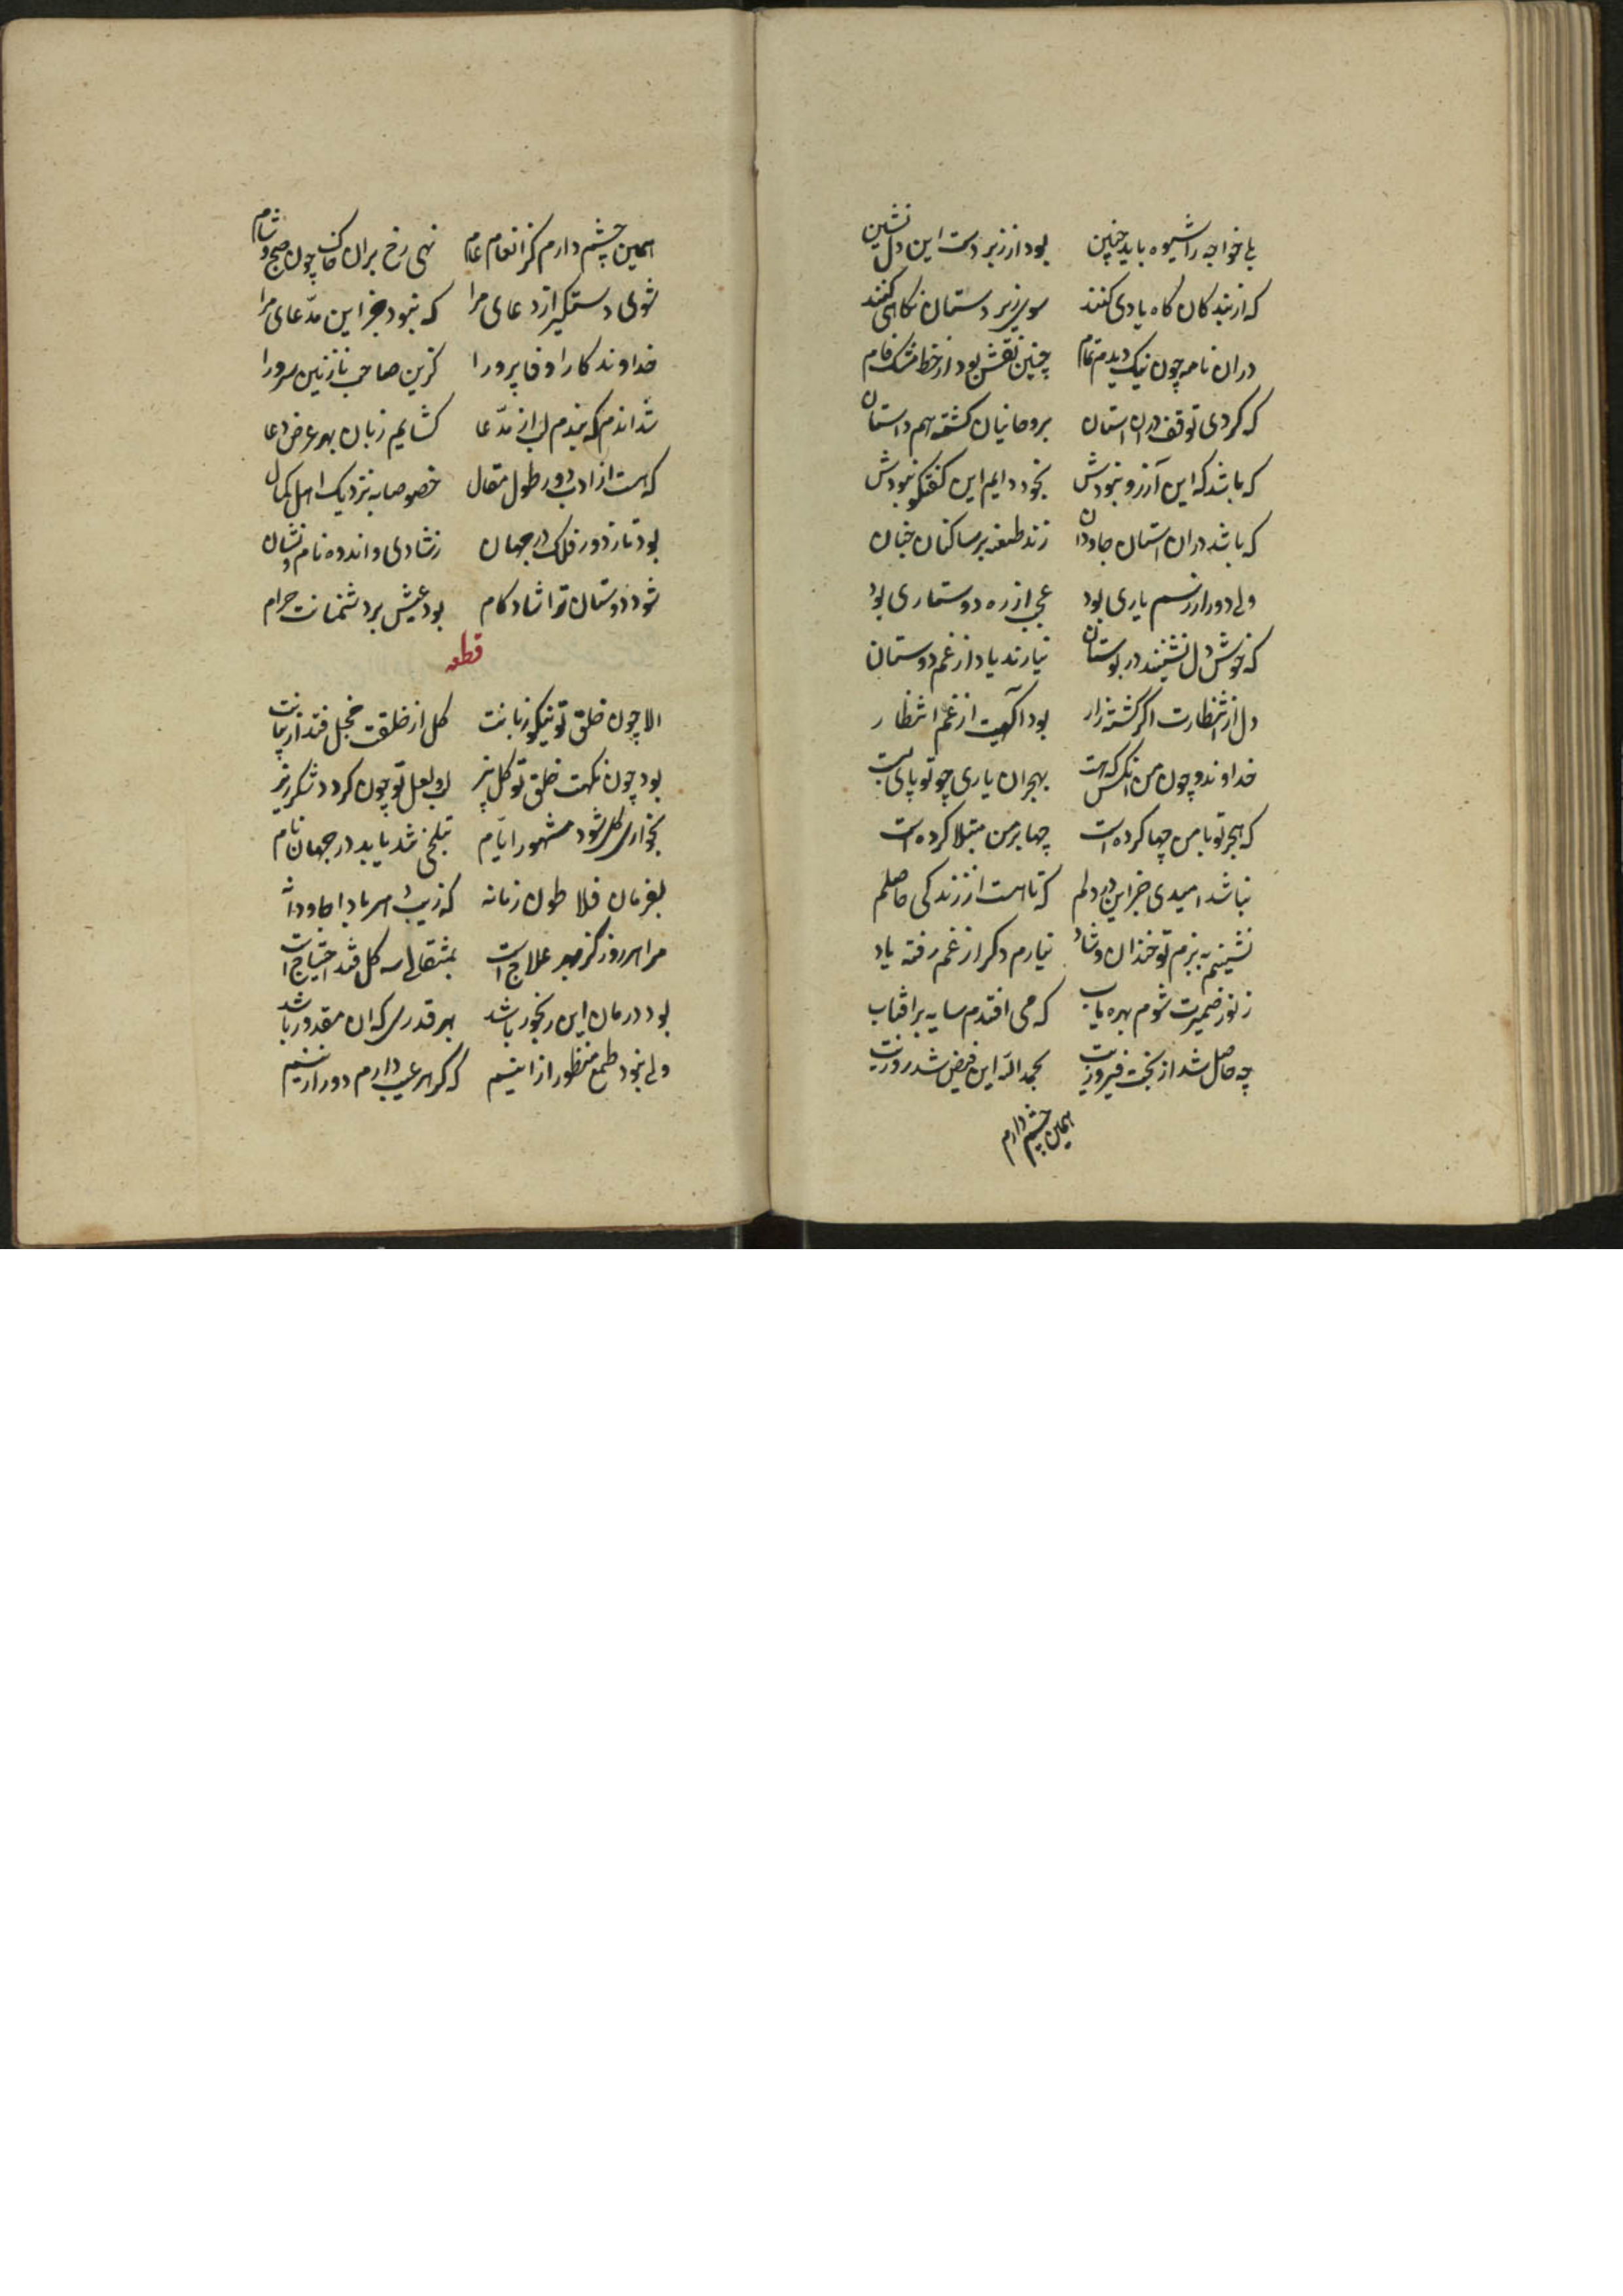 بلی خواجه را شیوه باید چنین بود از زبردست این دل نشین
که از بندکان کاه یادی کنند سوی زیردستان نکاهی کنند
دران نامه چون نیک دیدم تمام چنین نقش بود از خط مشک فام
که کردی توقف دران استان بروحانیان کشته هم داستان
که باشد که این آرزو نبودش بخود دایم این کفتکو نبودش
که باشد دران استان جاودان زند طعنه بر ساکنان جنان
ولی دور از رسم یاری بود عجب از ره دوستداری بود
که خوش دل نشینند در بوستان نیارند یاد از غم دوستان
دل از انتظارت اکر کشته زار بود اکهیت از غم انتظار
خداوند و چون من انکس که هست بهجران یاری چو تو پای بست
که هجر تو با من چها کرده است چها بر من مبتلا کرده است
نباشد امیدی جز این در دلم که تا هست از زندکی حاصلم
نشینم به بزم تو خندان و شاد نیارم دکر از غم رفته یاد
ز نور ضمیرت شوم بهره یاب که می افتدم سایه بر افتاب
چه حاصل شد از بخت فیروزیت بحمد الله این فیض شد روزیت
همین چشم دارم
همین چشم دارم کز انعام عام نهی رخ بران خاک چون صبح و شام
شوی دستکیر از دعای مرا که نبود جز این مدّعای مرا
خداوندکارا وفا پرورا کزین صاحب نازنین سرورا
شد اندم که بندم لب از مدّعا کشایم زبان بهر عرض دعا
که هست از ادب دور طول مقال خصوصا به نزدیک اهل کمال
بود تا ز دور فلک در جهان ز شادی و اندوه نام و نشان
شود دوستان ترا شاد کام بود عیش بر دشمنانت حرام
قطعه
الا چون خلق تو نیکو زبانت کل از خلقت خجل قند از بیانت
بود چون نکهت خلق تو کل بیز لب لعل تو چون کردد شکرریز
بخواری کل شود مشهور ایّام بتلخی قند یابد در جهان نام
بفرمان فلاطون زمانه که زیب دهر بادا جاودانه
مرا هر روز کز بهر علاج است بمثقالی سه کل قند احتیاج است
بود درمان این رنجور باشد بهر قدری که ان مقدور باشد
ولی نبود طمع منظور از اینیم که کر هر عیب دارم دور ازینیم